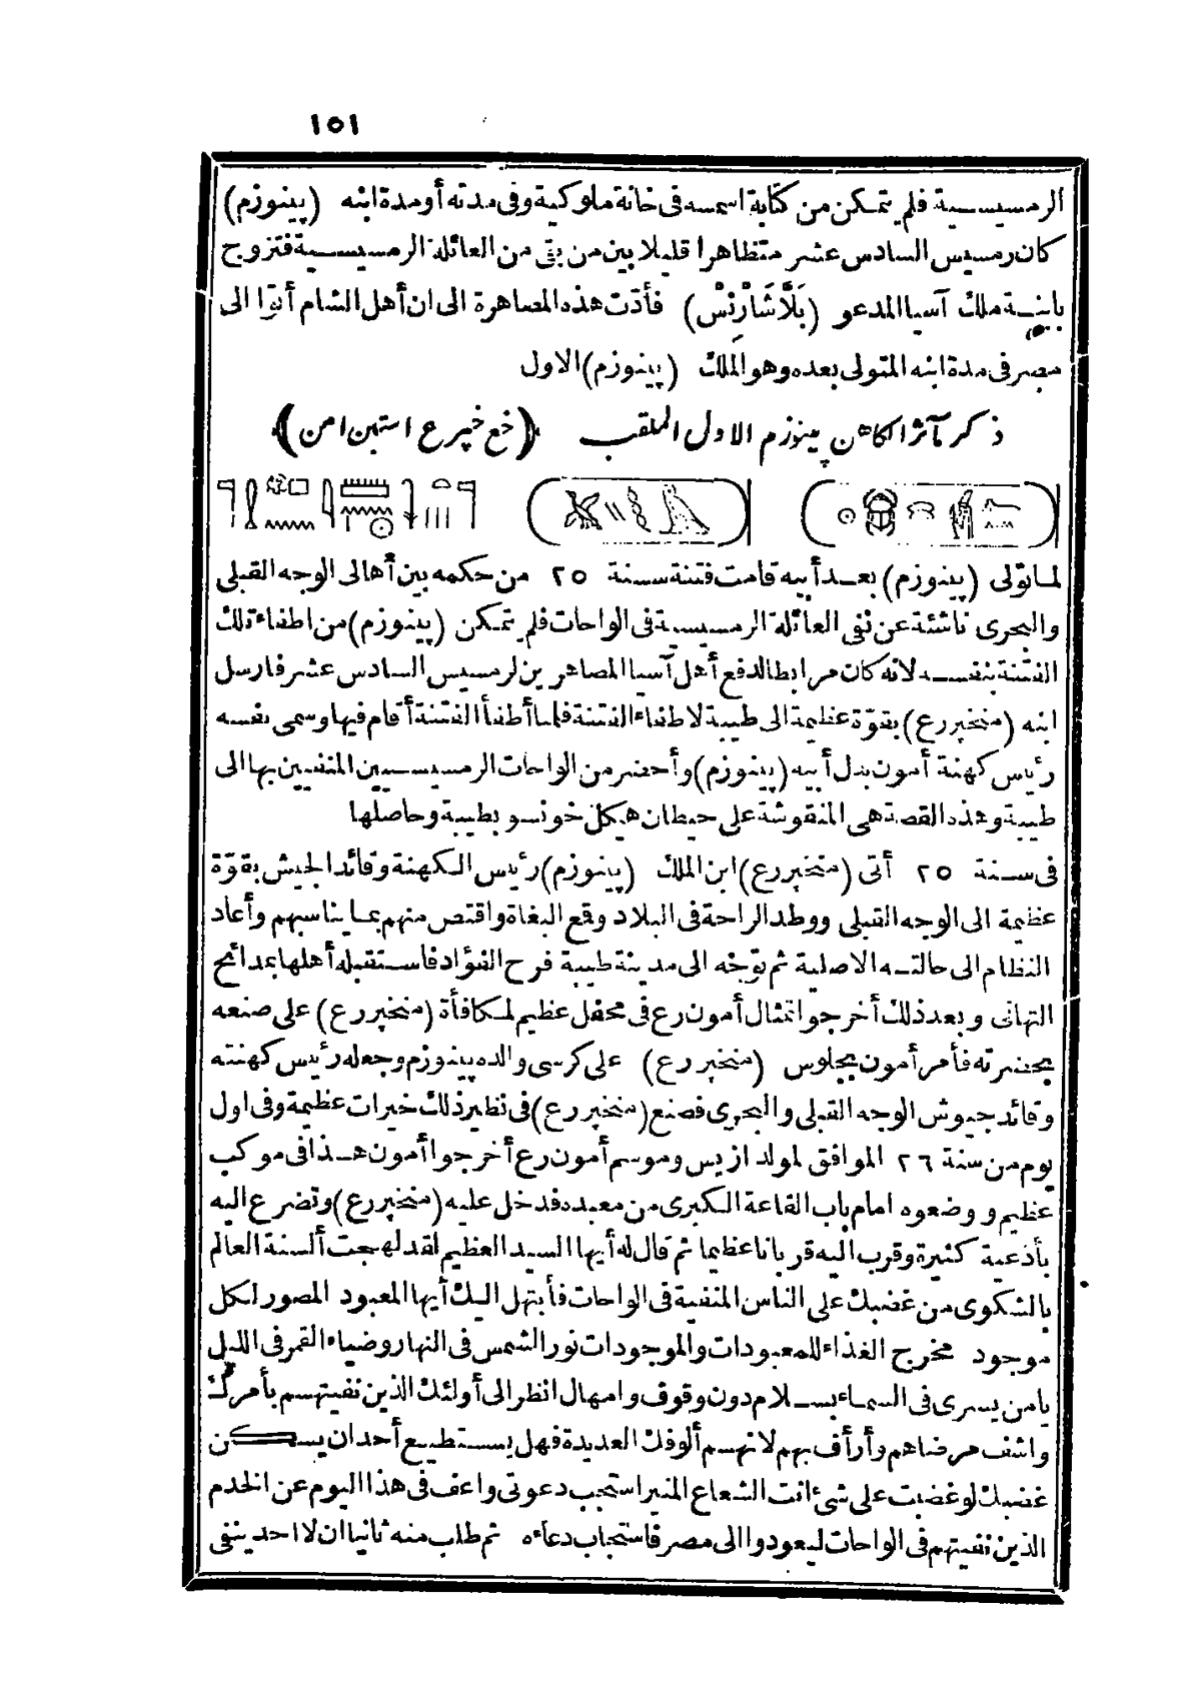 ١٥١
الرمسيسية فلم يتمكن من كتابة اسمه فى خانة ملوكية وفى مدته أو مدة ابنه (پينوزم)
كان رمسيس السادس عشر متظاهرا قليلا بين من بقى من العائلة الرمسيسية فتزوج
بابنة ملك آسيا المدعو (بَلَّاشَارْنِسْ) فأدّت هذه المصاهرة الى ان أهل الشام أتوا الى
مصر فى مدة ابنه المتولى بعده وهو الملك (پينوزم) الاول
ذكر مآثر الكاهن پينوزم الاول الملقب (خع خپر ع استپن امن)
لما تولى (پينوزم) بعد أبيه قامت فتنة سنة ٢٥ من حكمه بين أهالى الوجه القبلى
والبحرى ناشئة عن نفى العائلة الرمسيسية فى الواحات فلم يتمكن (پينوزم) من اطفاء تلك
الفتنة بنفسه لانه كان مرابطا لدفع أهل آسيا المصاهرين لرمسيس السادس عشر فارسل
ابنه (منخپررع) بقوّة عظيمة الى طيبة لاطفاء الفتنة فلما أطفأ الفتنة أقام فيها وسمى نفسه
رئيس كهنة أمون بدل أبيه (پينوزم) وأحضر من الواحات الرمسيسيين المنفيين بها الى
طيبة وهذه القصة هى المنقوشة على حيطان هيكل خونسو بطيبة وحاصلها
فى سنة ٢٥ أتى (منخپررع) ابن الملك (پينوزم) رئيس الكهنة وقائد الجيش بقوّة
عظيمة الى الوجه القبلى ووطد الراحة فى البلاد وقمع البغاة واقتص منهم بما يناسبهم وأعاد
النظام الى حالته الاصلية ثم توّجه الى مدينة طيبة فرح الفؤاد فاستقبله أهلها بمدائح
التهانى وبعد ذلك أخرجوا تمثال أمون رع فى محفل عظيم لمكافأة (منخپررع) على صنعه
بحضرته فأمر أمون بجلوس (منخپررع) على كرسى والده پينوزم وجعله رئيس كهنته
وقائد جيوش الوجه القبلى والبحرى فصنع (منخپررع) فى نظير ذلك خيرات عظيمة وفى اول
يوم من سنة ٢٦ الموافق لمولد ازيس وموسم أمون رع أخرجوا أمون هذا فى موكب
عظيم ووضعوه امام باب القاعة الكبرى من معبده فدخل عليه (منخپررع) وتضرع اليه
بأدعية كثيرة وقرب اليه قربانا عظيما ثم قال له أيها السيد العظيم لقد لهجت ألسنة العالم
بالشكوى من غضبك على الناس المنفية فى الواحات فأبتهل اليك أيها المعبود المصور لكل
موجود مخرج الغذاء للمعبودات والموجودات نور الشمس فى النهار وضياء القمر فى الليل
يامن يسرى فى السماء بسلام دون وقوف وامهال انظر الى أولئك الذين نفيتهم بأمرك
واشف مرضاهم وأرأف بهم لانهم ألوفك العديدة فهل يستطيع أحد ان يسكن
غضبك لو غضبت على شئ انت الشعاع المنير استجب دعوتى واعف فى هذا اليوم عن الخدم
الذين نفيتهم فى الواحات ليعودوا الى مصر فاستجاب دعاءه ثم طلب منه ثانيا ان لا احد ينفى